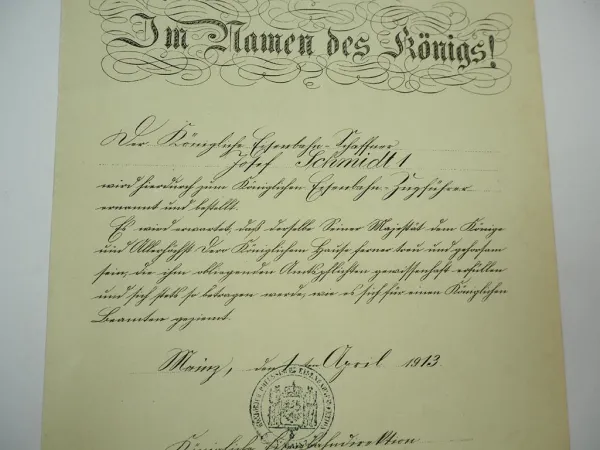 Im Namen des Königs!
Der Königliche Eisenbahn-Schaffner
Josef Schmidt 1
wird hierdurch zum Königlichen Eisenbahn-Zugführer
ernannt und bestellt.
Es wird erwartet, daß derselbe Seiner Majestät dem Könige
und Allerhöchst Dero Königlichem Hause ferner treu und gehorsam
sein, die ihm obliegenden Amtspflichten gewissenhaft erfüllen
und sich stets so betragen werde, wie es sich für einen Königlichen
Beamten geziemt.
Mainz, den 1ten April 1913.
Königliche Eisenbahndirektion